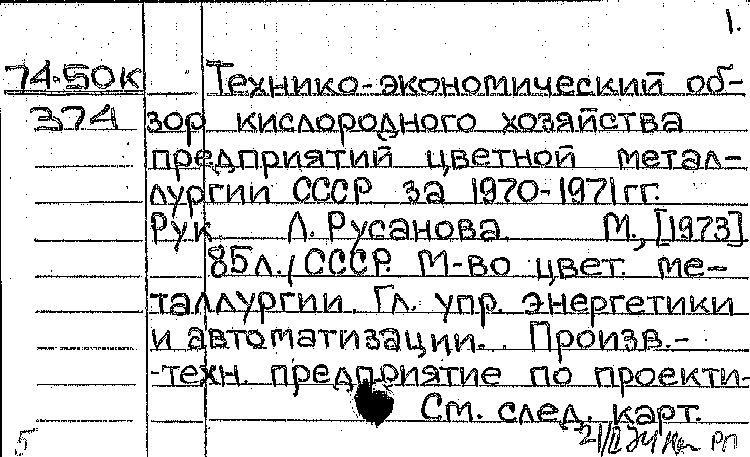 1.
74.50К Технико-экономический об-
374 зор кислородного хозяйства
предприятий цветной метал-
лургии СССР за 1970-1971 гг.
Рук Л. Русанова. М., [1973]
85 л. (СССР. М-во цвет. ме-
таллургии. Гл. упр. энергетики
и автоматизации. Произв.-
-техн. предприятие по проекти-
См. след. карт.
5 РП